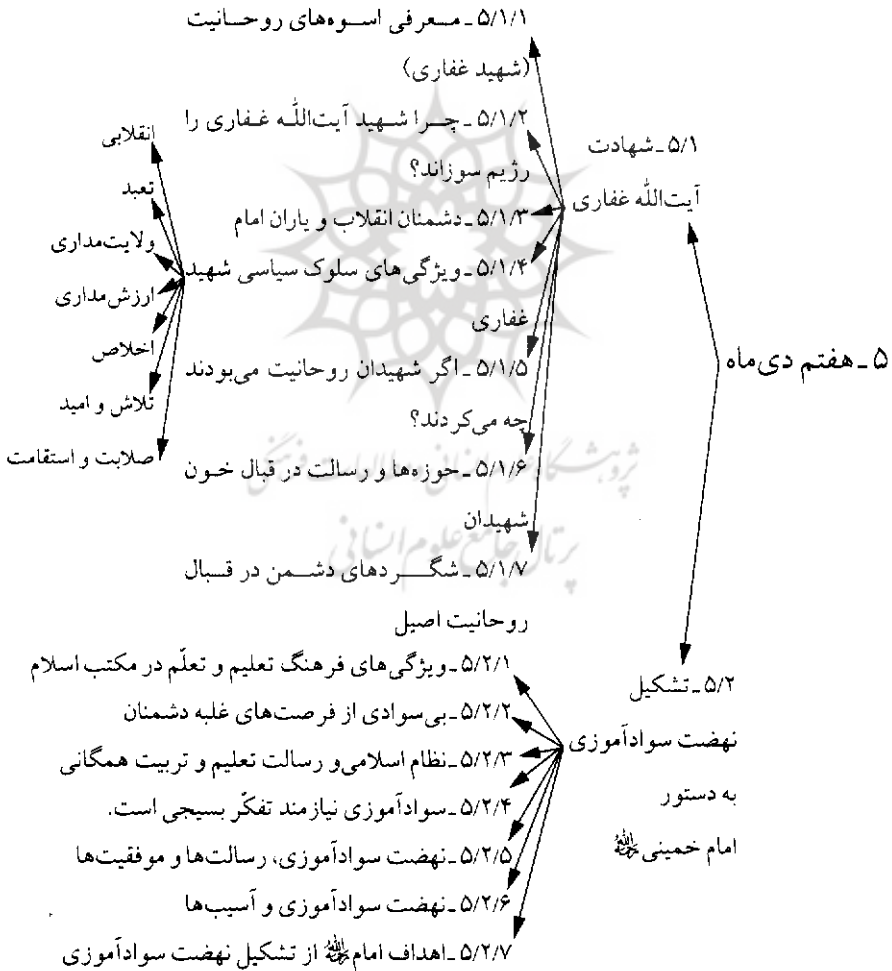 ۵ ـ هفتم دی‌ماه
۵/۱ ـ شهادت
آیت‌الله غفاری
۵/۱/۱ ـ معرفی اسوه‌های روحانیت
(شهید غفاری)
۵/۱/۲ ـ چرا شهید آیت‌اللّه غفاری را
رژیم سوزاند؟
۵/۱/۳ ـ دشمنان انقلاب و یاران امام
۵/۱/۴ ـ ویژگی‌های سلوک سیاسی شهید
غفاری
۵/۱/۵ ـ اگر شهیدان روحانیت می‌بودند
چه می‌کردند؟
۵/۱/۶ ـ حوزه‌ها و رسالت در قبال خون
شهیدان
۵/۱/۷ ـ شگردهای دشمن در قبال
روحانیت اصیل
انقلابی
تعبد
ولایت‌مداری
ارزش‌مداری
اخلاص
تلاش و امید
صلابت و استقامت
۵/۲ ـ تشکیل
نهضت سوادآموزی
به دستور
امام خمینی ﷺ
۵/۲/۱ ـ ویژگی‌های فرهنگ تعلیم و تعلّم در مکتب اسلام
۵/۲/۲ ـ بی‌سوادی از فرصت‌های غلبه دشمنان
۵/۲/۳ ـ نظام اسلامی و رسالت تعلیم و تربیت همگانی
۵/۲/۴ ـ سوادآموزی نیازمند تفکّر بسیجی است.
۵/۲/۵ ـ نهضت سوادآموزی، رسالت‌ها و موفقیت‌ها
۵/۲/۶ ـ نهضت سوادآموزی و آسیب‌ها
۵/۲/۷ ـ اهداف امام از تشکیل نهضت سوادآموزی
پژوهشگاه علوم انسانی و مطالعات فرهنگی
پرتال جامع علوم انسانی